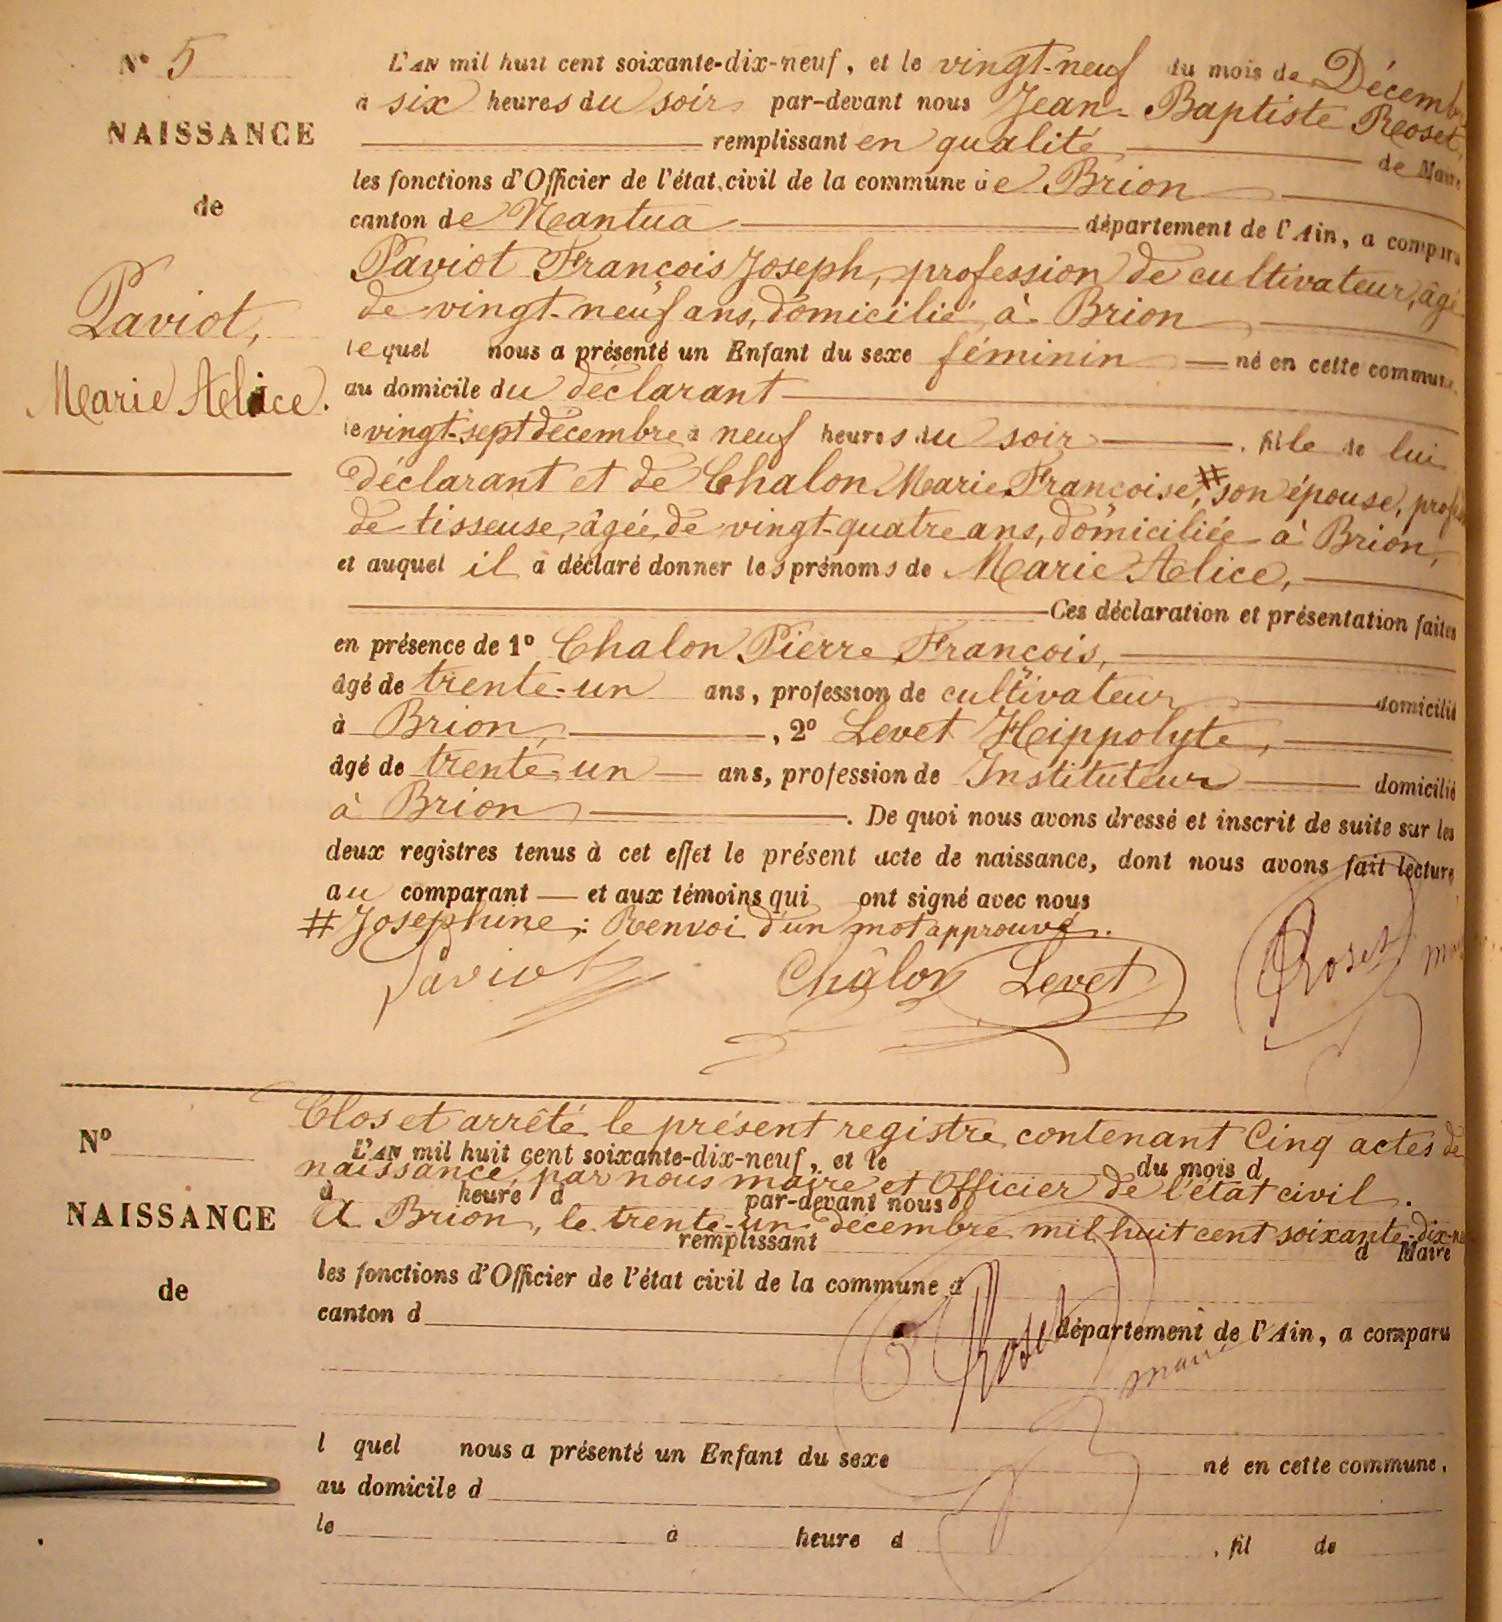 N° 5
NAISSANCE
de
Paviot,
Marie Alice.
L'AN mil huit cent soixante-dix-neuf, et le vingt-neuf du mois de Décemb
à six heures du soir par-devant nous Jean-Baptiste Roset,
remplissant en qualité de Maire
les fonctions d'Officier de l'état civil de la commune de Brion
canton de Nantua département de l'Ain, a comparu
Paviot François Joseph, profession de cultivateur, âgé
de vingt-neuf ans, domicilié à Brion
lequel nous a présenté un Enfant du sexe féminin né en cette commune,
au domicile du déclarant
le vingt-sept décembre à neuf heures du soir, fille de lui
déclarant et de Chalon Marie Françoise, # son épouse, profes
de tisseuse, âgée de vingt-quatre ans, domiciliée à Brion,
et auquel il a déclaré donner les prénoms de Marie Alice,
Ces déclaration et présentation faites
en présence de 1° Chalon Pierre François,
âgé de trente-un ans, profession de cultivateur domicilié
à Brion, , 2° Levet Hippolyte,
âgé de trente-un ans, profession de Instituteur domicilié
à Brion . De quoi nous avons dressé et inscrit de suite sur les
deux registres tenus à cet effet le présent acte de naissance, dont nous avons fait lecture
au comparant et aux témoins qui ont signé avec nous
# Josephine ; Renvoi d'un mot approuvé.
Paviot Châlon Levet Roset
Clos et arrêté le présent registre contenant Cinq actes de
N° L'AN mil huit cent soixante-dix-neuf, et le du mois d
naissance, par nous maire et Officier de l'état civil.
à heure d par-devant nous
NAISSANCE A Brion, le trente-un décembre mil huit cent soixante-dix-ne
remplissant d Maire
de
les fonctions d'Officier de l'état civil de la commune d
canton d département de l'Ain, a comparu
Roset maire
l quel nous a présenté un Enfant du sexe né en cette commune,
au domicile d
le à heure d , fil de